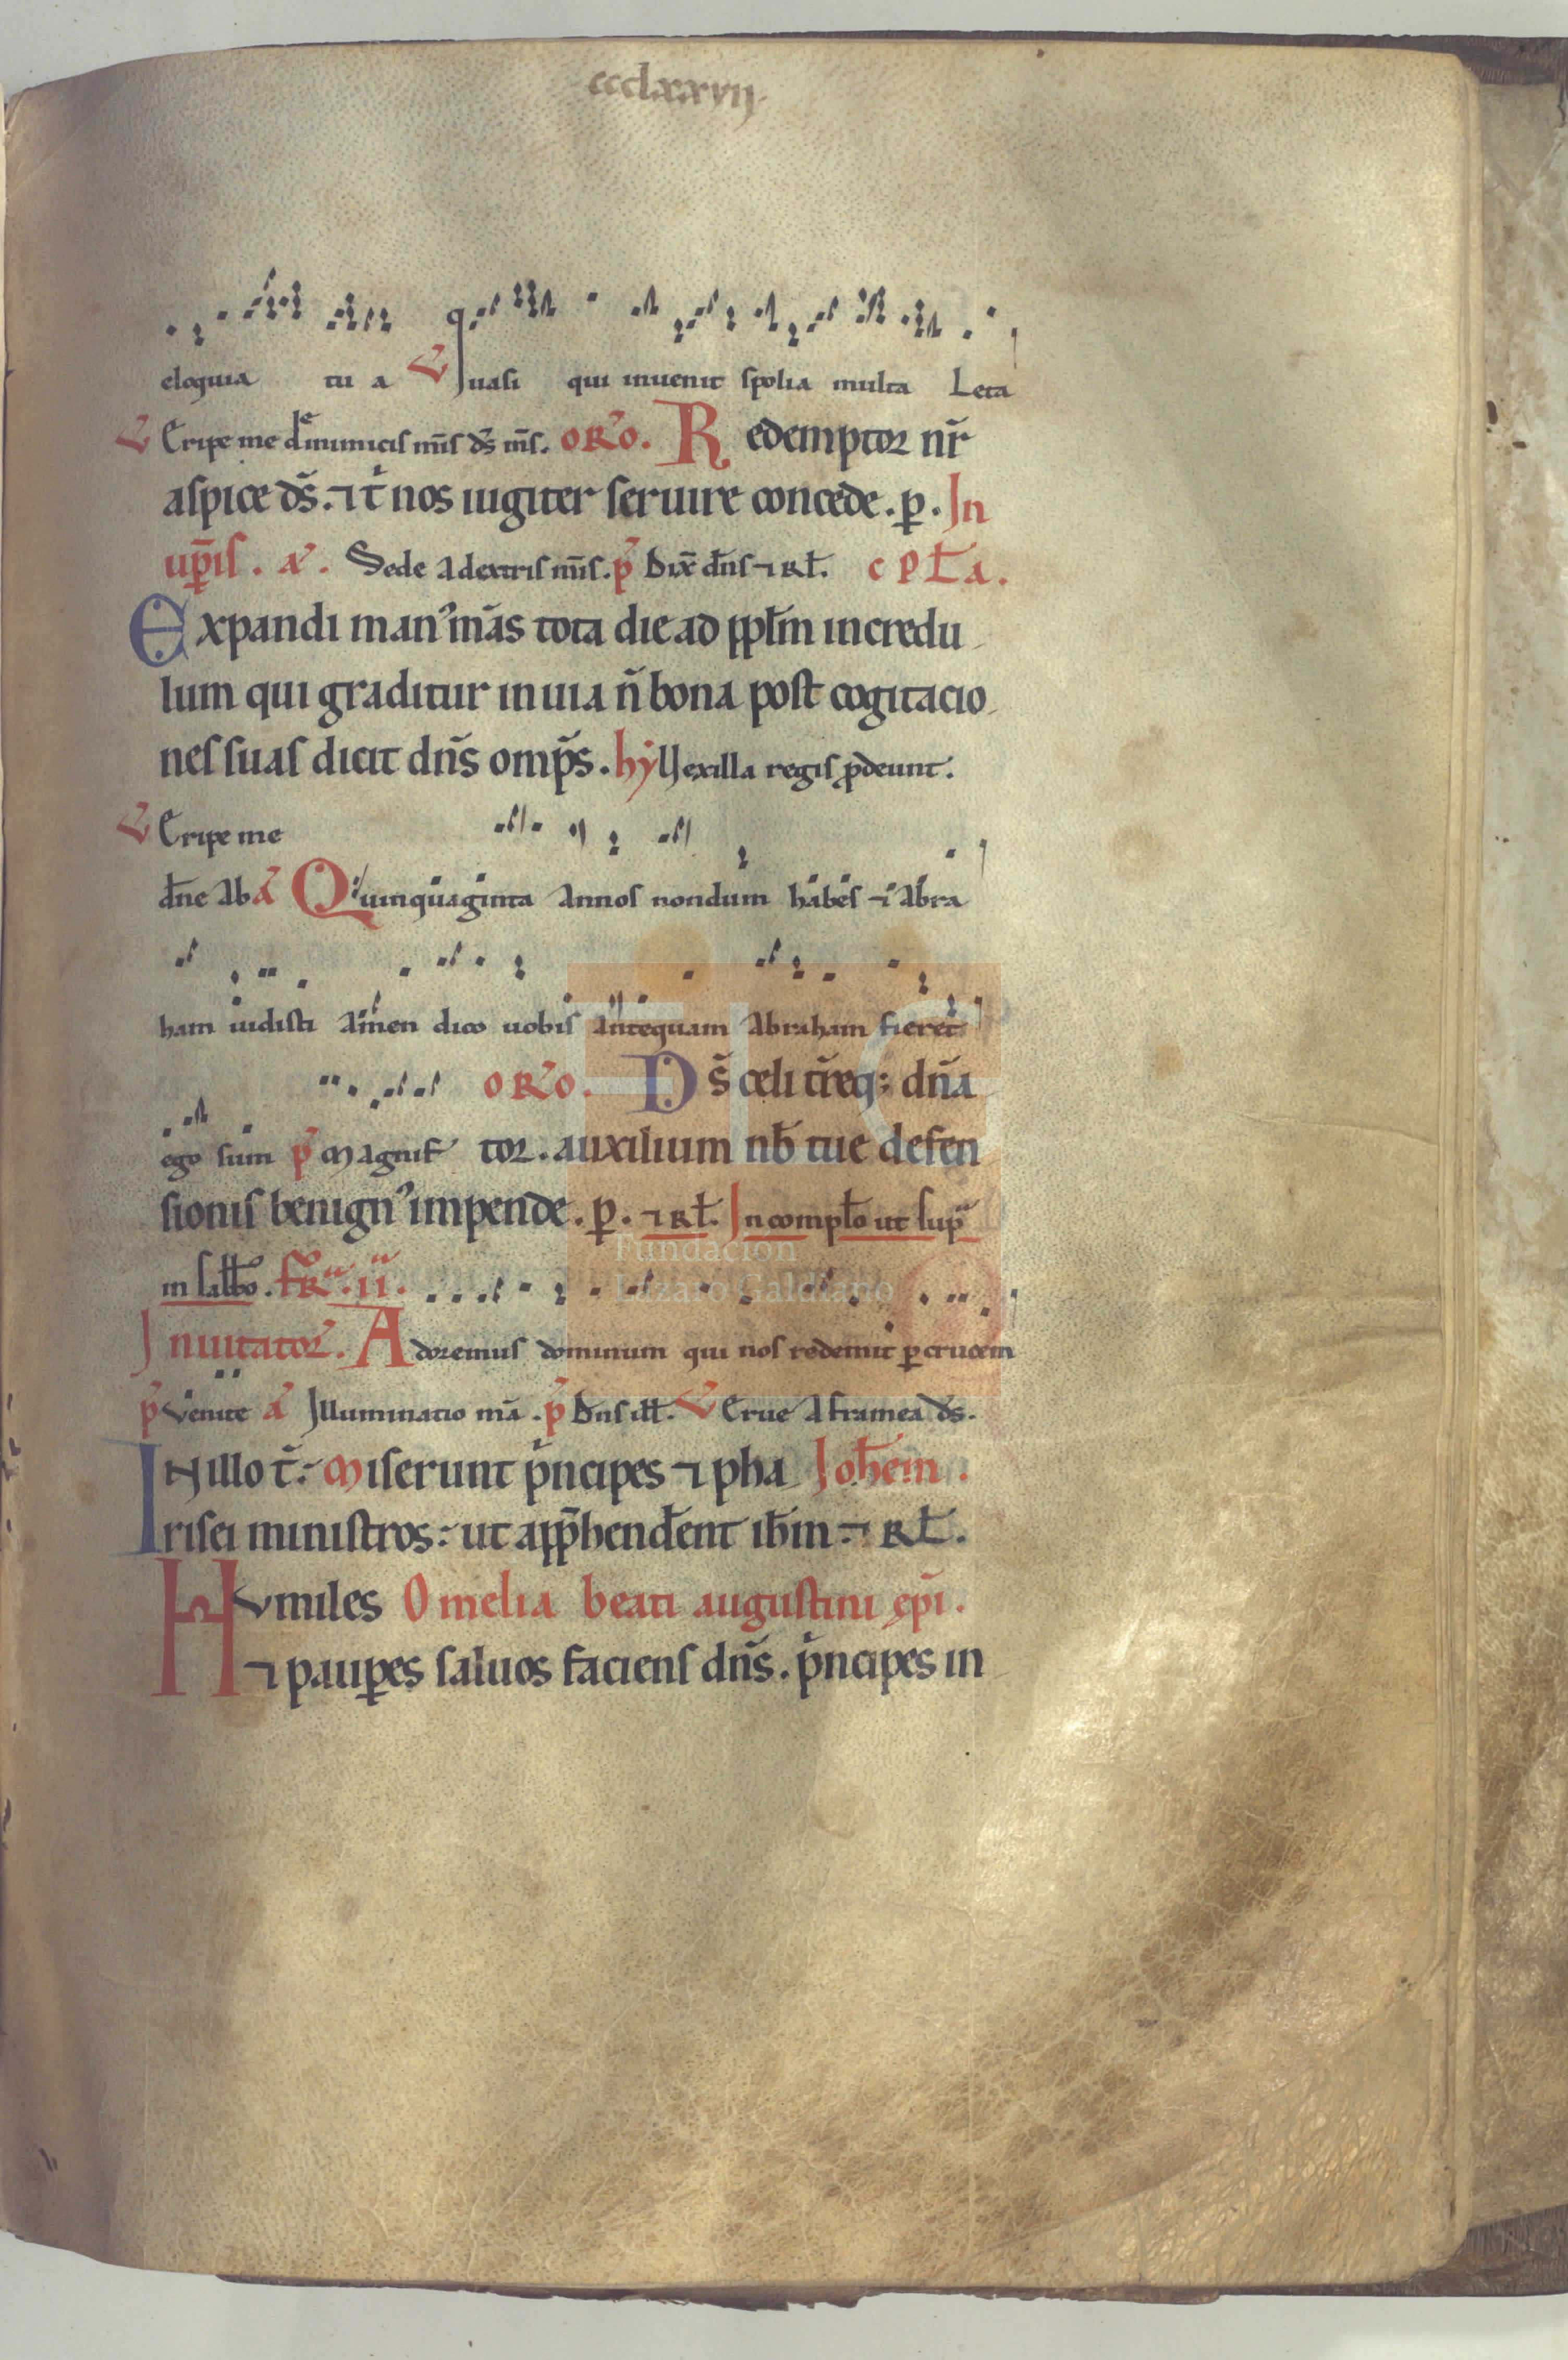 ccclxxvij.
eloquia tu a ℣ Quasi qui inuenit spolia multa Leta
℣ Eripe me de inimicis m̄is d̄s m̄s. oRº. Redemptor nr̄
aspice d̄s. ⁊ t̄ nos iugiter seruire concede. p. In
up̄is. a. Sede a dextris m̄is. p̄ Dix̄ dn̄s ⁊ Rł. c P ła.
Expandi man᾽ m̄as tota die ad ppl̄m incredu
lum qui graditur in uia n̄ bona post cogitacio
nes suas dicit dn̄s omp̄s. hy Vexilla regis ꝓdeunt.
℣ Eripe me
dn̄e ab a Quinquaginta annos nondum habes ⁊ abra
ham uidisti amen dico uobis antequam abraham fieret
oRº. Ds̄ celi tr̄eq; dn̄a
ego sum p̄ Magnif tor. auxilium nb̄ tue defen
sionis benign᾽ impende. p. ⁊ Rł. In compł̄o ut sup̄
in sabb̄o. fr̄a. ii.
Inuitator̄. Adoremus dominum qui nos redemit per crucem
p̄ Venite a Illuminatio m̄a. p̄ Dn̄s iłł. ℣ Erue a framea d̄s.
IN illo t̄. Miserunt pͥncipes ⁊ pha Joh̄em.
risei ministros: ut app̄hender̄ent ih̄m ⁊ Rł.
Humiles Omelia beati augustini ep̄i.
⁊ pauꝑes saluos faciens dn̄s. pͥncipes in
Fundación
Lázaro Galdiano